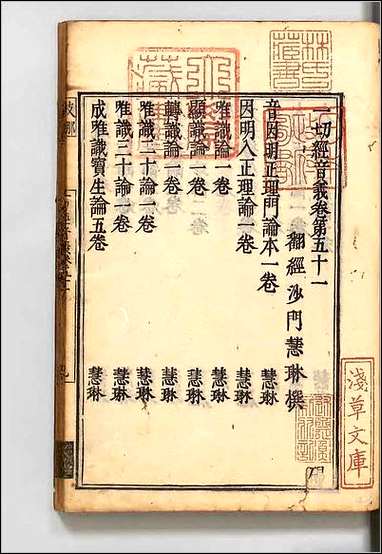 一切經音義卷第五十一
翻經沙門慧琳撰
音因明正理門論本一卷 慧琳
因明入正理論一卷 慧琳
唯識論一卷 慧琳
顯識論一卷 慧琳
轉識論一卷 慧琳
唯識二十論一卷 慧琳
唯識三十論一卷 慧琳
成唯識寶生論五卷 慧琳
淺草文庫